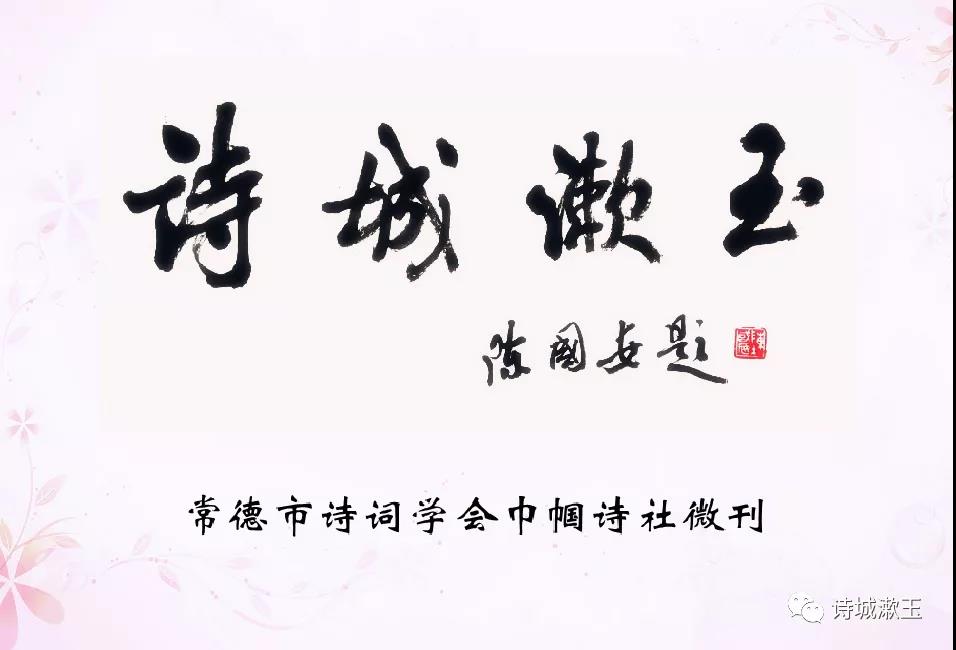 诗城漱玉
陈国安题
常德市诗词学会巾帼诗社微刊
诗城漱玉